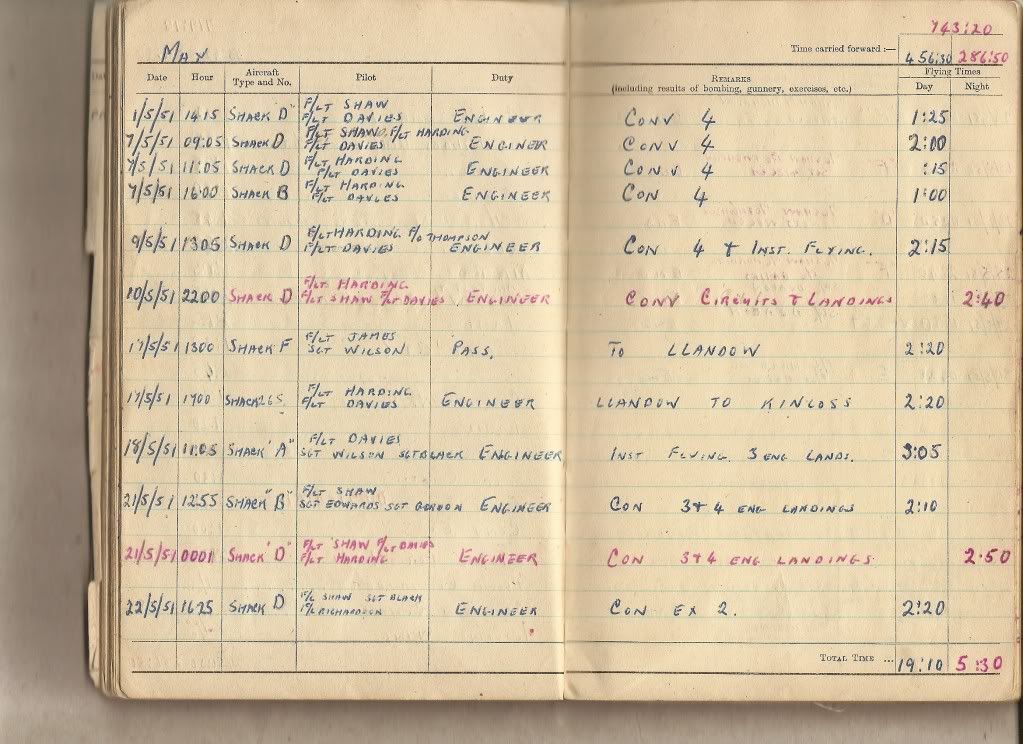 743:20
MAY
Time carried forward :—
456:30 286:50
Date Hour Aircraft Type and No. Pilot Duty REMARKS (including results of bombing, gunnery, exercises, etc.) Flying Times Day Night
F/LT SHAW
1/5/51 14.15 SHACK D" F/LT DAVIES ENGINEER CONV 4 1:25
F/LT SHAW F/LT HARDING
7/5/51 09:05 SHACK D F/LT DAVIES ENGINEER CONV 4 2:00
F/LT HARDING
7/5/51 11:05 SHACK D F/LT DAVIES ENGINEER CONV 4 :15
F/LT HARDING
7/5/51 16:00 SHACK B F/LT DAVIES ENGINEER CON 4 1:00
F/LT HARDING F/O THOMPSON
9/5/51 1305 SHACK D F/LT DAVIES ENGINEER CON 4 & INST. FLYING. 2:15
F/LT HARDING
10/5/51 2200 SHACK D F/LT SHAW F/LT DAVIES ENGINEER CONV CIRCUITS & LANDINGS 2:40
F/LT JAMES
17/5/51 1300 SHACK F SGT WILSON PASS. TO LLANDOW 2:20
F/LT HARDING
17/5/51 1700 SHACK 265 F/LT DAVIES ENGINEER LLANDOW TO KINLOSS 2:20
F/LT DAVIES
18/5/51 11.05 SHACK "A" SGT WILSON SGT BLACK ENGINEER INST FLYING. 3 ENG LANDS. 3:05
F/LT SHAW
21/5/51 12:55 SHACK "B" SGT EDWARDS SGT GORDON ENGINEER CON 3&4 ENG LANDINGS 2:10
F/LT SHAW F/LT DAVIES
21/5/51 0001 SHACK "D" F/LT HARDING ENGINEER CON 3&4 ENG LANDINGS 2:50
F/L SHAW SGT BLACK
22/5/51 1625 SHACK D F/L RICHARDSON ENGINEER CON EX 2. 2:20
TOTAL TIME ... 19:10 5:30